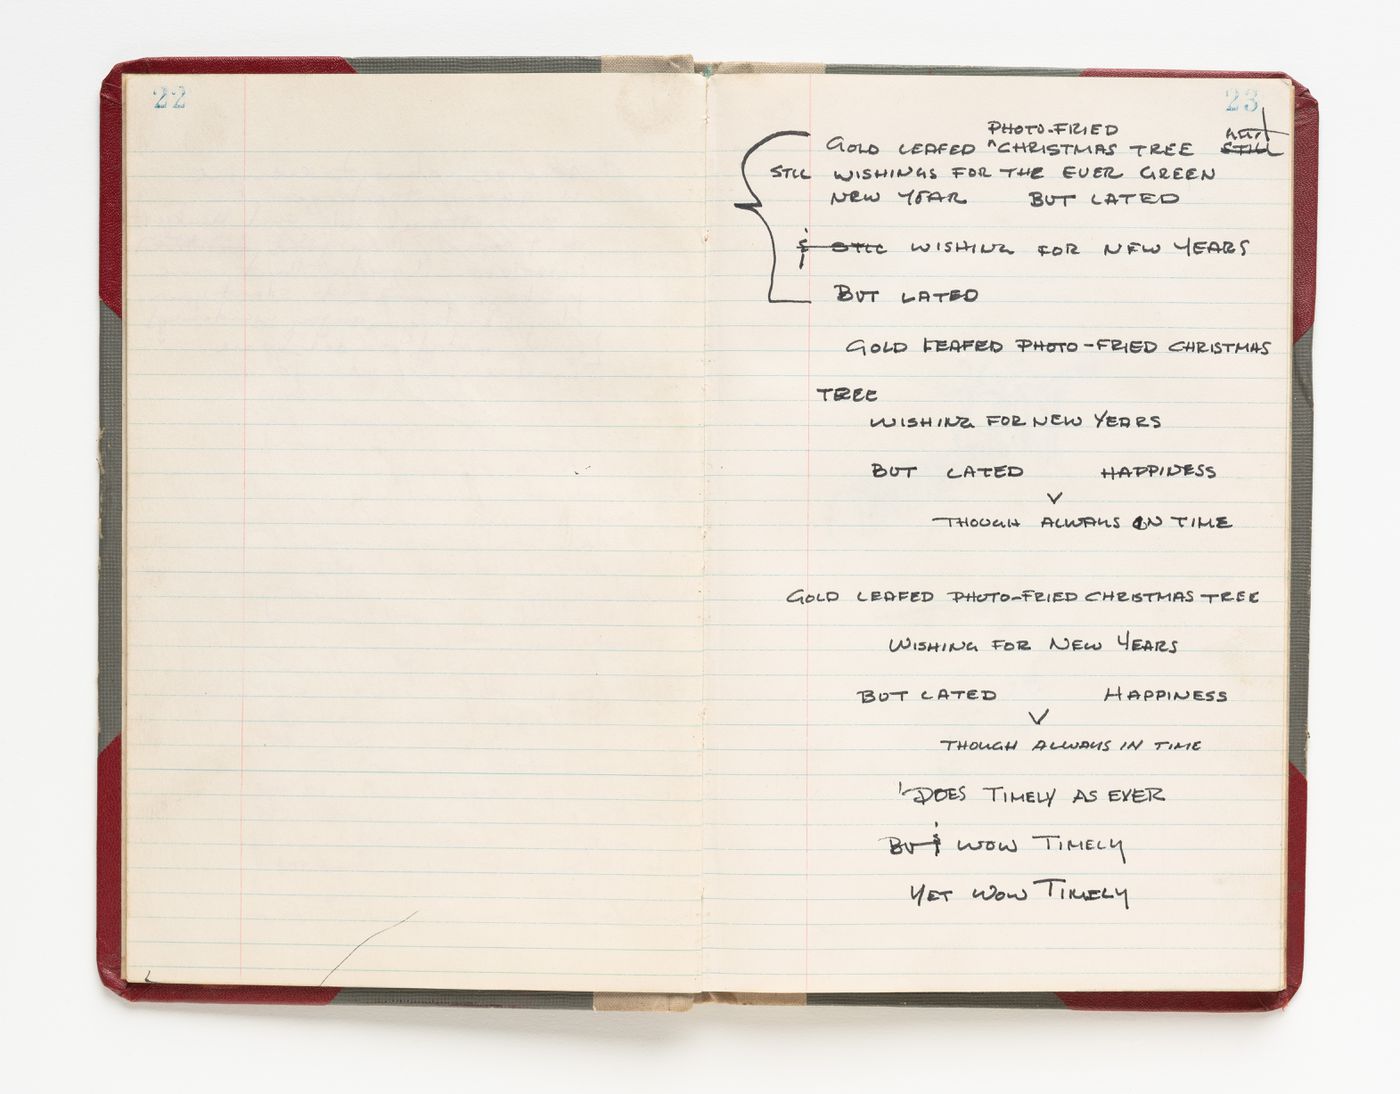 22
23
PHOTO-FRIED
GOLD LEAFED ^CHRISTMAS TREE STILL
STILL WISHINGS FOR THE EVER GREEN
NEW YEAR BUT LATED
& STILL WISHING FOR NEW YEARS
BUT LATED
GOLD LEAFED PHOTO-FRIED CHRISTMAS
TREE
WISHING FOR NEW YEARS
BUT LATED HAPPINESS
THOUGH ALWAYS IN TIME
GOLD LEAFED PHOTO-FRIED CHRISTMAS TREE
WISHING FOR NEW YEARS
BUT LATED HAPPINESS
THOUGH ALWAYS IN TIME
DOES TIMELY AS EVER
BUT & WOW TIMELY
YET WOW TIMELY